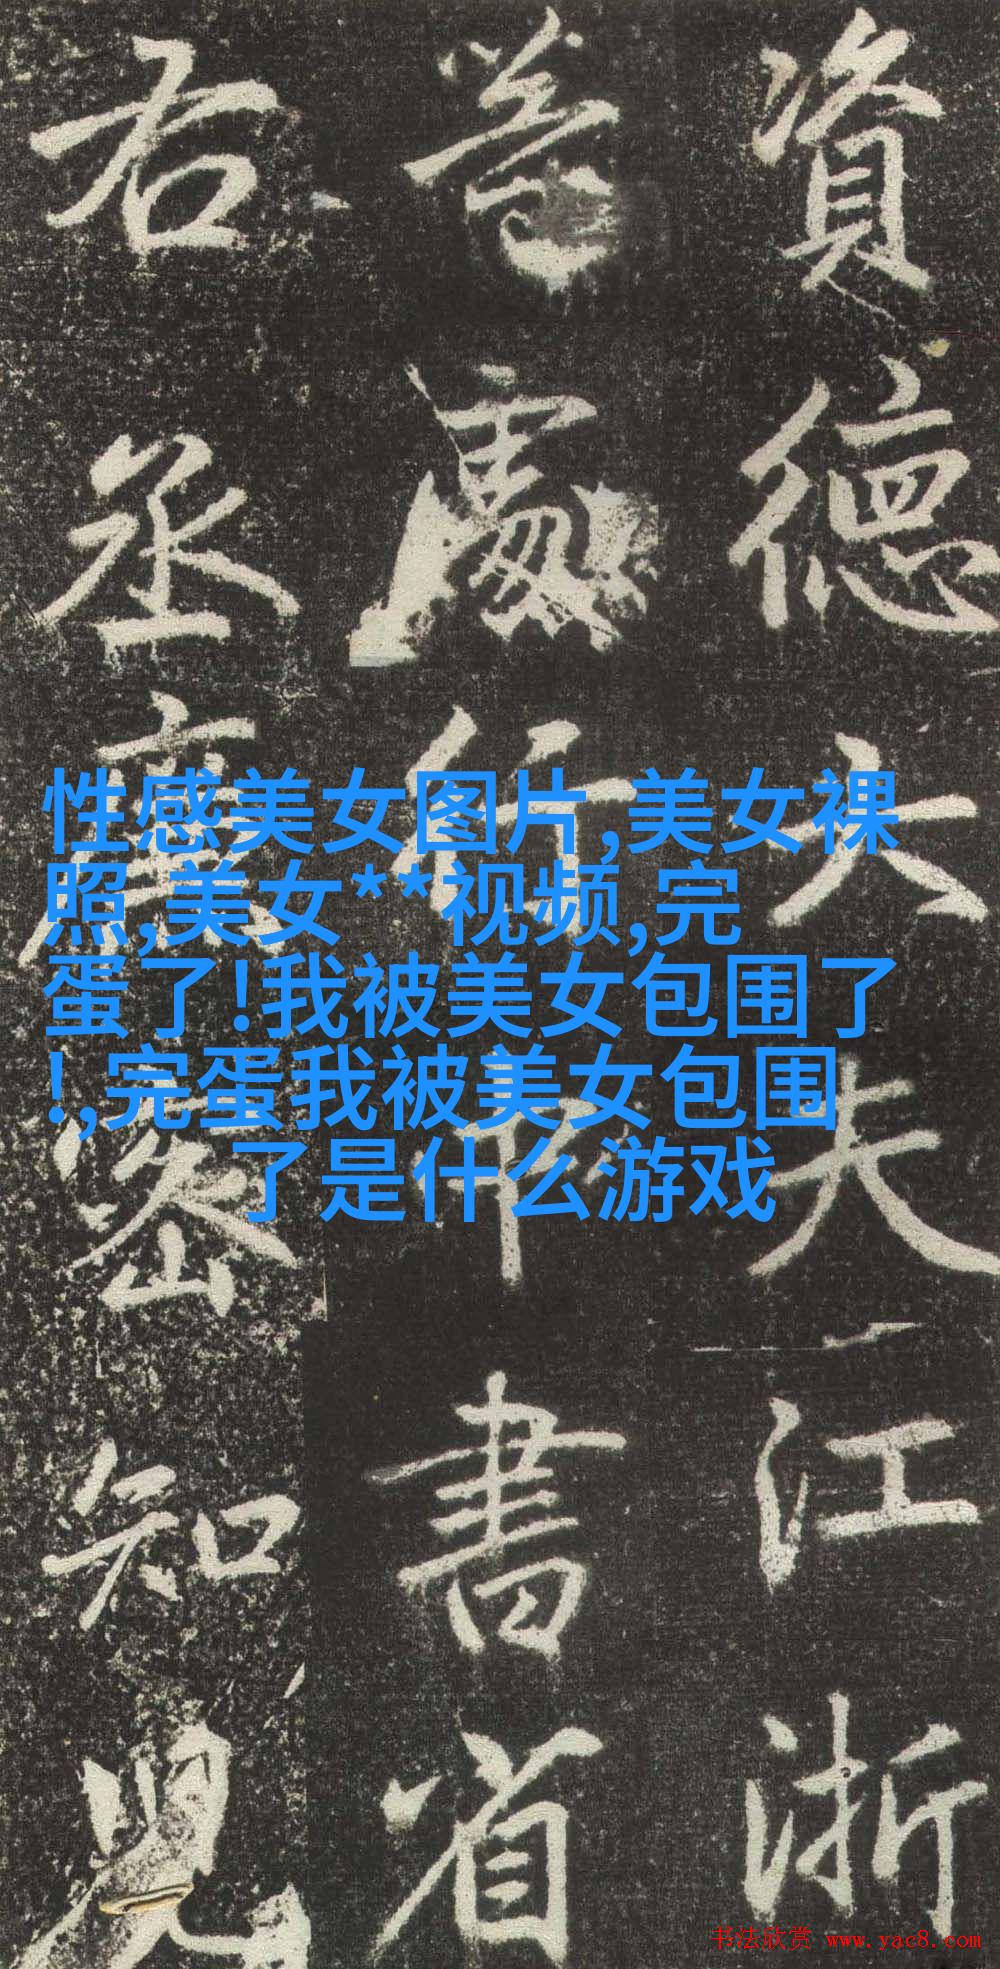 資德大夫江浙
等處行中書省
右丞廉密知兒
性感美女图片,美女裸
照,美女**视频,完
蛋了!我被美女包围了
!,完蛋我被美女包围
了是什么游戏
书法欣赏 www.yac8.com